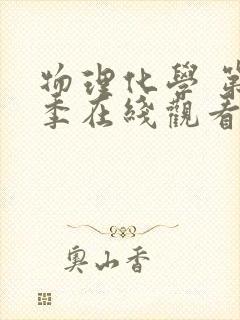 物理化學 第
季在綫觀看
奧山香